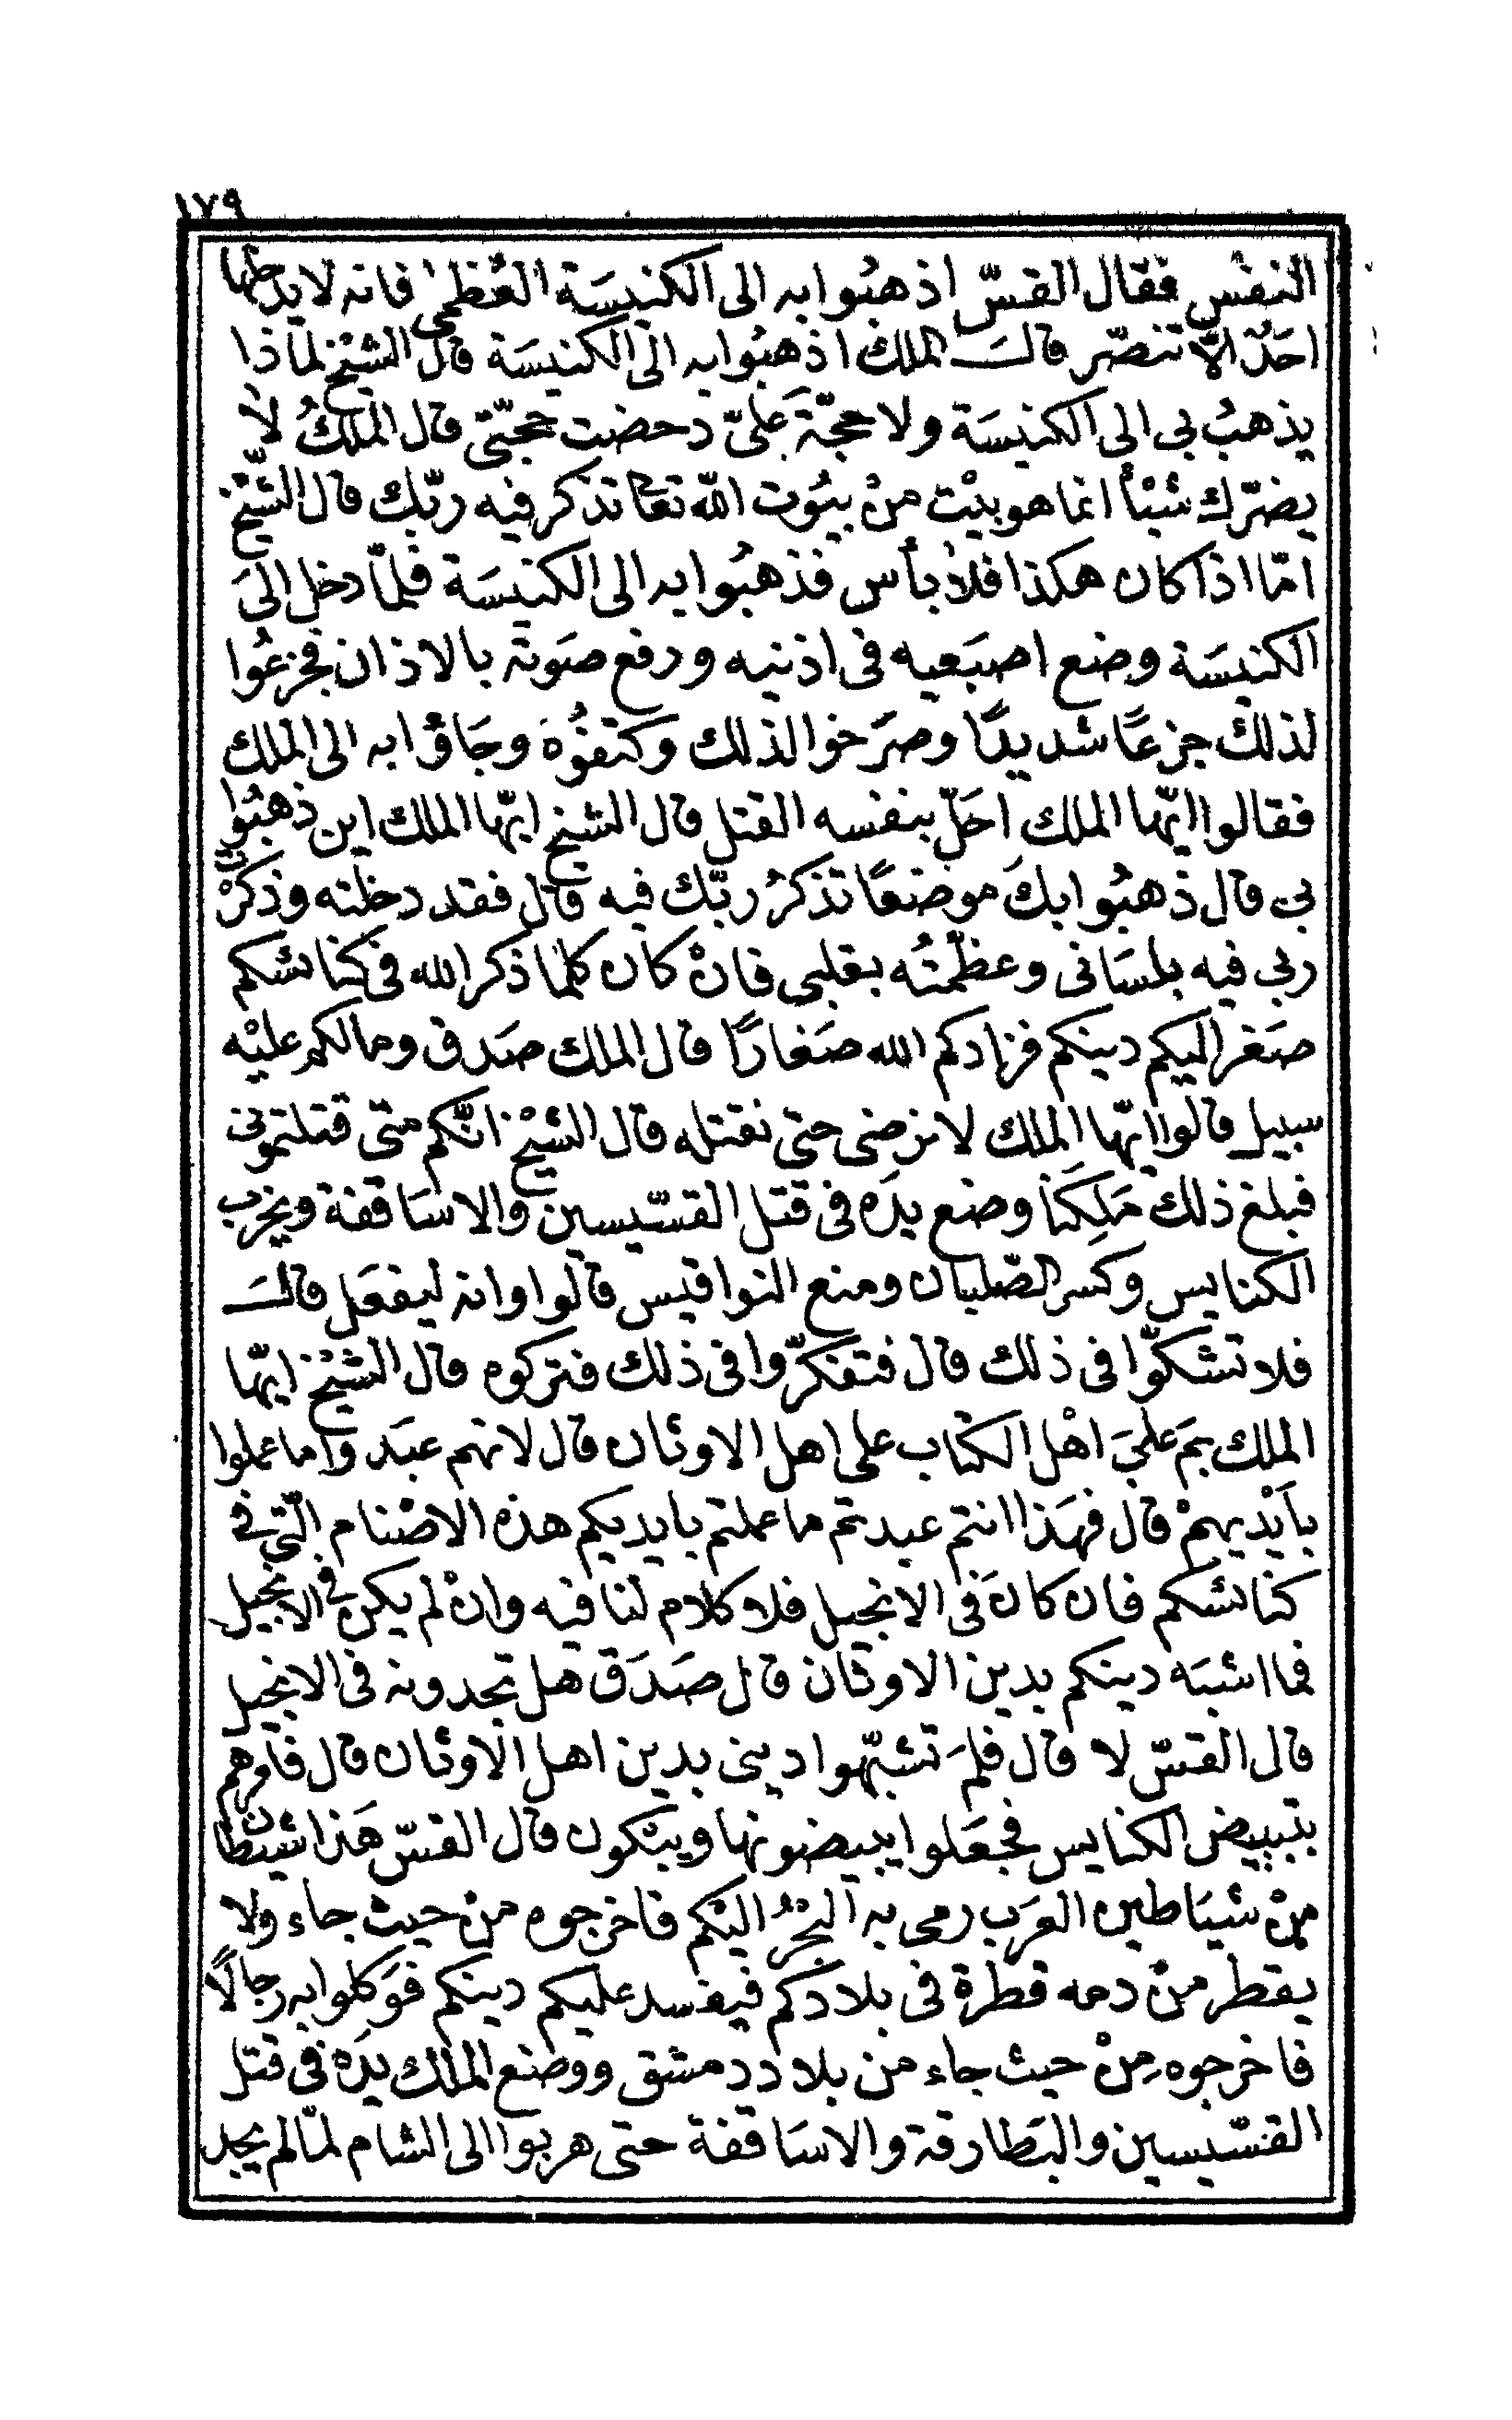 ١٧٩
النفس فقال القسّ اذهبُوا به الى الكنيسَة العُظمى فانه لا يدخلها
احَدٌ الّا تنصّر قالَ الملك اذهبُوا به الى الكنيسَة قال الشيْخ لماذا
يذهبُ بى الى الكنيسَة ولا حجّة علىّ دحضت حجّتى قال الملكُ لا
يضرّك شيْأ انما هو بيْت منْ بيُوت الله تعا تذكر فيه ربّك قال الشّيْخ
امّا اذا كان هكذا فلا بأس فذهبُوا به الى الكنيسَة فلمّا دخل الىَ
الكنيسَة وضع اصبَعيه فى اذنيه ورفع صَوته بالاذان فجزعُوا
لذلك جزعًا شديدًا وصرَخوا لذلك وكتفوُه وجَاؤا به الى الملك
فقالوا ايّها الملك احَلّ بنفسه القتل قال الشيخ ايّها الملك اين ذهبُوا
بى قال ذهبُوا بكَ موضعًا تذكرُ ربّك فيه قال فقد دخلته وذكرْت
ربى فيه بلسَانى وعظّمتُه بقلبى فانْ كان كلما ذكر الله فى كنائسكم
صَغر اليكم دينكم فزادكم الله صَغارًا قال الملك صَدق ومالكم عليْه
سبيل قالوا ايّها الملك لا نرضى حتى نقتله قال الشيْخ انّكم متى قتلتمونى
فبلغ ذلك مَلِكَنا وضع يدَه فى قتل القسّيسين والاسَاقفة ويخرب
الكنايس وكسر الصّلبان ومنع النواقيس قالوا وانه ليفعَل قالَ
فلا تشكّوا فى ذلك قال فتفكّروا فى ذلك فتركوه قال الشيْخ ايّها
الملك بمَ علىَ اهْل الكتاب على اهل الاوثان قال لانهم عبَدوا ما عملوا
بأيْديهمْ قال فهَذا انتم عبدتم ما عملتم بايديكم هذه الاصْنام الّتى فى
كنائسكم فان كانَ فى الانجيل فلا كلام لنا فيه وانْ لم يكن فى الانجيل
فما اشبَه دينكم بدين الاوثان قال صَدَق هل تجدونه فى الانجيل
قال القسّ لا قال فلمَ تشبّهوا دينى بدين اهل الاوثان قال فامرهم
بتبييض الكنايس فجعَلوا يبيضونها ويبْكون قال القسّ هَذا شيْطان
منْ شيَاطين العرَب رمى به البَحْرُ اليْكم فاخرجوه منْ حيث جاء ولا
يقطر منْ دمه قطرة فى بلادكم فيفسد عليكم دينكم فوَكلوا به رجالًا
فاخرجوه مِنْ حيث جاء من بلاد دمشق ووضع الملك يدَه فى قتل
القسّيسين والبَطارقة والاسَاقفة حتى هربوا الى الشام لمّا لم يجد